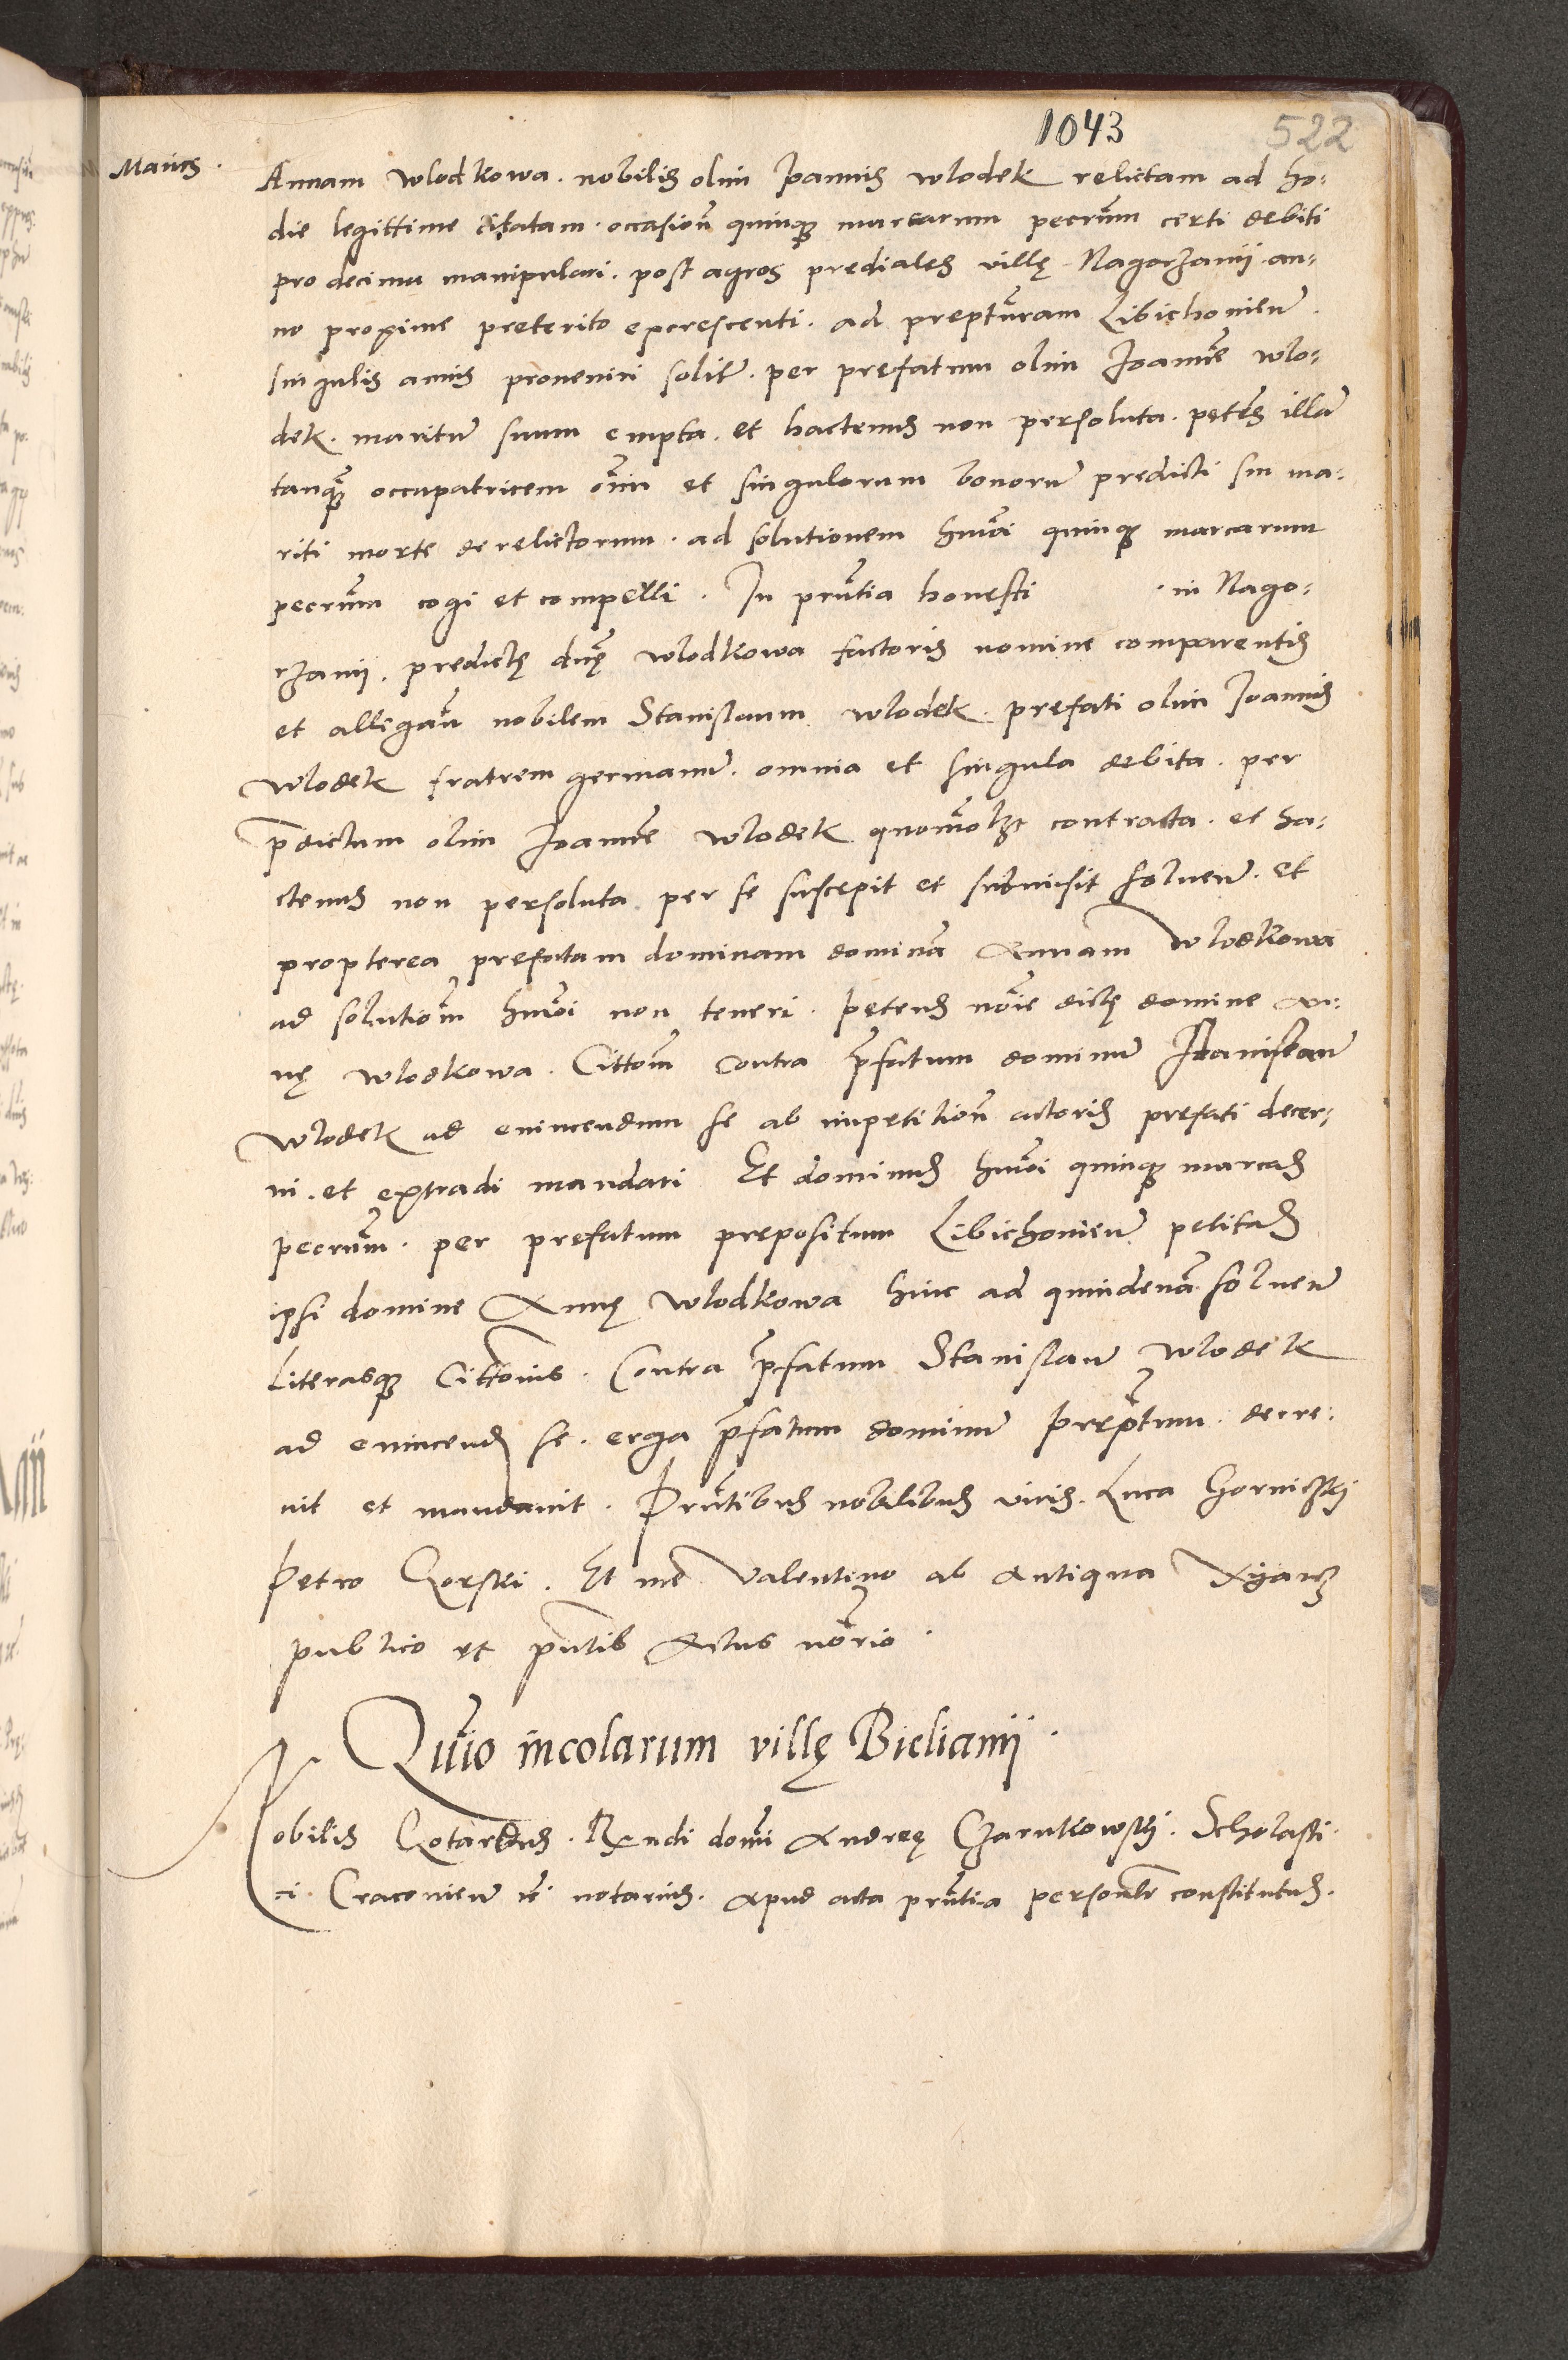 1043 522
Maius.
Annam Wlodkowa. nobilis olim Joannis Wlodek relictam ad ho-
die legittime citatam. occasioñ quinq marcarum pecuñ certi debiti
pro decima manipulari. post agros prediales villę Nagorzanii. an-
no proxime preterito excrescenti. ad prepturam Libichovieñ.
singulis annis provenini solit. per prefatum olim Joanne Wlo-
dek. maritu suum empta. et hactenus non persoluta. petes illa
tanq occupatricem oim et singulorum bonoru predicti sui ma-
riti morte derelictorum. ad solutionem humoi quinq marcarum
pecurm cogi et compelli. In pruntia honesti . in Nago-
rzanii. predictę dnę Wlodkowa factoris nomine comparentis
et allegañ nobilem Stanislaum Wlodek. prefati olim Joannis
Wlodek fratrem germanu. omnia et singula debita. per
pdictum olim Joanne Wlodek quomolzt contracta. et ha-
ctenus non persoluta per se suscepit et submisit solueñ. et
propterea prefatam dominam domina Annam Wlodkowa
ad solutiom humoi non teneri. petens noie dictę domine An-
nę Wlodkowa. Cittom contra pfatum dominu Stanislau
Wlodek ad evincendum se ab impetitioñ actoris prefati decer-
ni. et extradi mandari Et dominus humoi quinq marcas
pecurm. per prefatum prepositum Libichovieñ petitas
ipsi domine Annę Wlodkowa hinc ad quindena solueñ
Literasq Cittonis. Contra pfatum Stanislau Wlodek
ad evincend se. erga pfatum dominu preptum. decre-
vit et mandavit. Pruntibus nobilibus viris. Luca Gorniczki
Petro Gorski. Et me Valentino ab Antiqua Xyaz
publico et puntis Actus norio.
Quio incolarum villę Bielianii.
Nobilis Gotardus. Rndi domi Andreę Czarnkowski. Scholasti-
ci Cracovieñ notarius. Apud acta pruntia personlr constitutus.